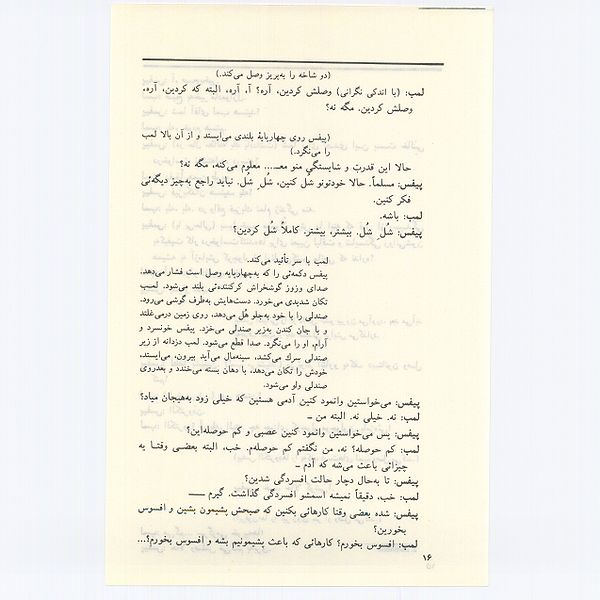 (دو شاخه را به‌پریز وصل می‌کند.)
لمب: (با اندکی نگرانی) وصلش کردین، آره؟ آ، آره، البته که کردین، آره،
وصلش کردین. مگه نه؟
(پیفس روی چهارپایهٔ بلندی می‌ایستد و از آن بالا لمب
را می‌نگرد.)
حالا این قدرت و شایستگی منو معـ.... معلوم می‌کنه، مگه نه؟
پیفس: مسلماً. حالا خودتونو شُل کنین، شُل شُل. نباید راجع به‌چیز دیگه‌ئی
فکر کنین.
لمب: باشه.
پیفس: شُل شُل. بیشتر، بیشتر. کاملاً شُل کردین؟
لمب با سر تأئید می‌کند.
پیفس دکمه‌ئی را که به‌چهارپایه وصل است فشار می‌دهد.
صدای وزوز گوشخراش کرکننده‌ئی بلند می‌شود. لمب
تکان شدیدی می‌خورد. دست‌هایش به‌طرف گوشی می‌رود.
صندلی را با خود به‌جلو هُل می‌دهد، روی زمین درمی‌غلتد
و با جان کندن به‌زیر صندلی می‌خزد. پیفس خونسرد و
آرام، او را می‌نگرد. صدا قطع می‌شود. لمب دزدانه از زیر
صندلی سرك می‌کشد، سینه‌مال می‌آید بیرون، می‌ایستد،
خودش را تکان می‌دهد، با دهان بسته می‌خندد و بعدروی
صندلی ولو می‌شود.
پیفس: می‌خواستین وانمود کنین آدمی هستین که خیلی زود به‌هیجان میاد؟
لمب: نه. خیلی نه. البته من ـ
پیفس: پس می‌خواستین وانمود کنین عصبی و کم حوصله‌این؟
لمب: کم حوصله؟ نه، من نگفتم کم حوصله‌م. خب، البته بعضی وقتا یه
چیزائی باعث می‌شه که آدم ـ
پیفس: تا به‌حال دچار حالت افسردگی شدین؟
لمب: خب، دقیقاً نمیشه اسمشو افسردگی گذاشت. گیرم ــــ
پیفس: شده بعضی وقتا کارهائی بکنین که صبحش پشیمون بشین و افسوس
بخورین؟
لمب: افسوس بخورم؟ کارهائی که باعث پشیمونیم بشه و افسوس بخورم؟...
۱۶